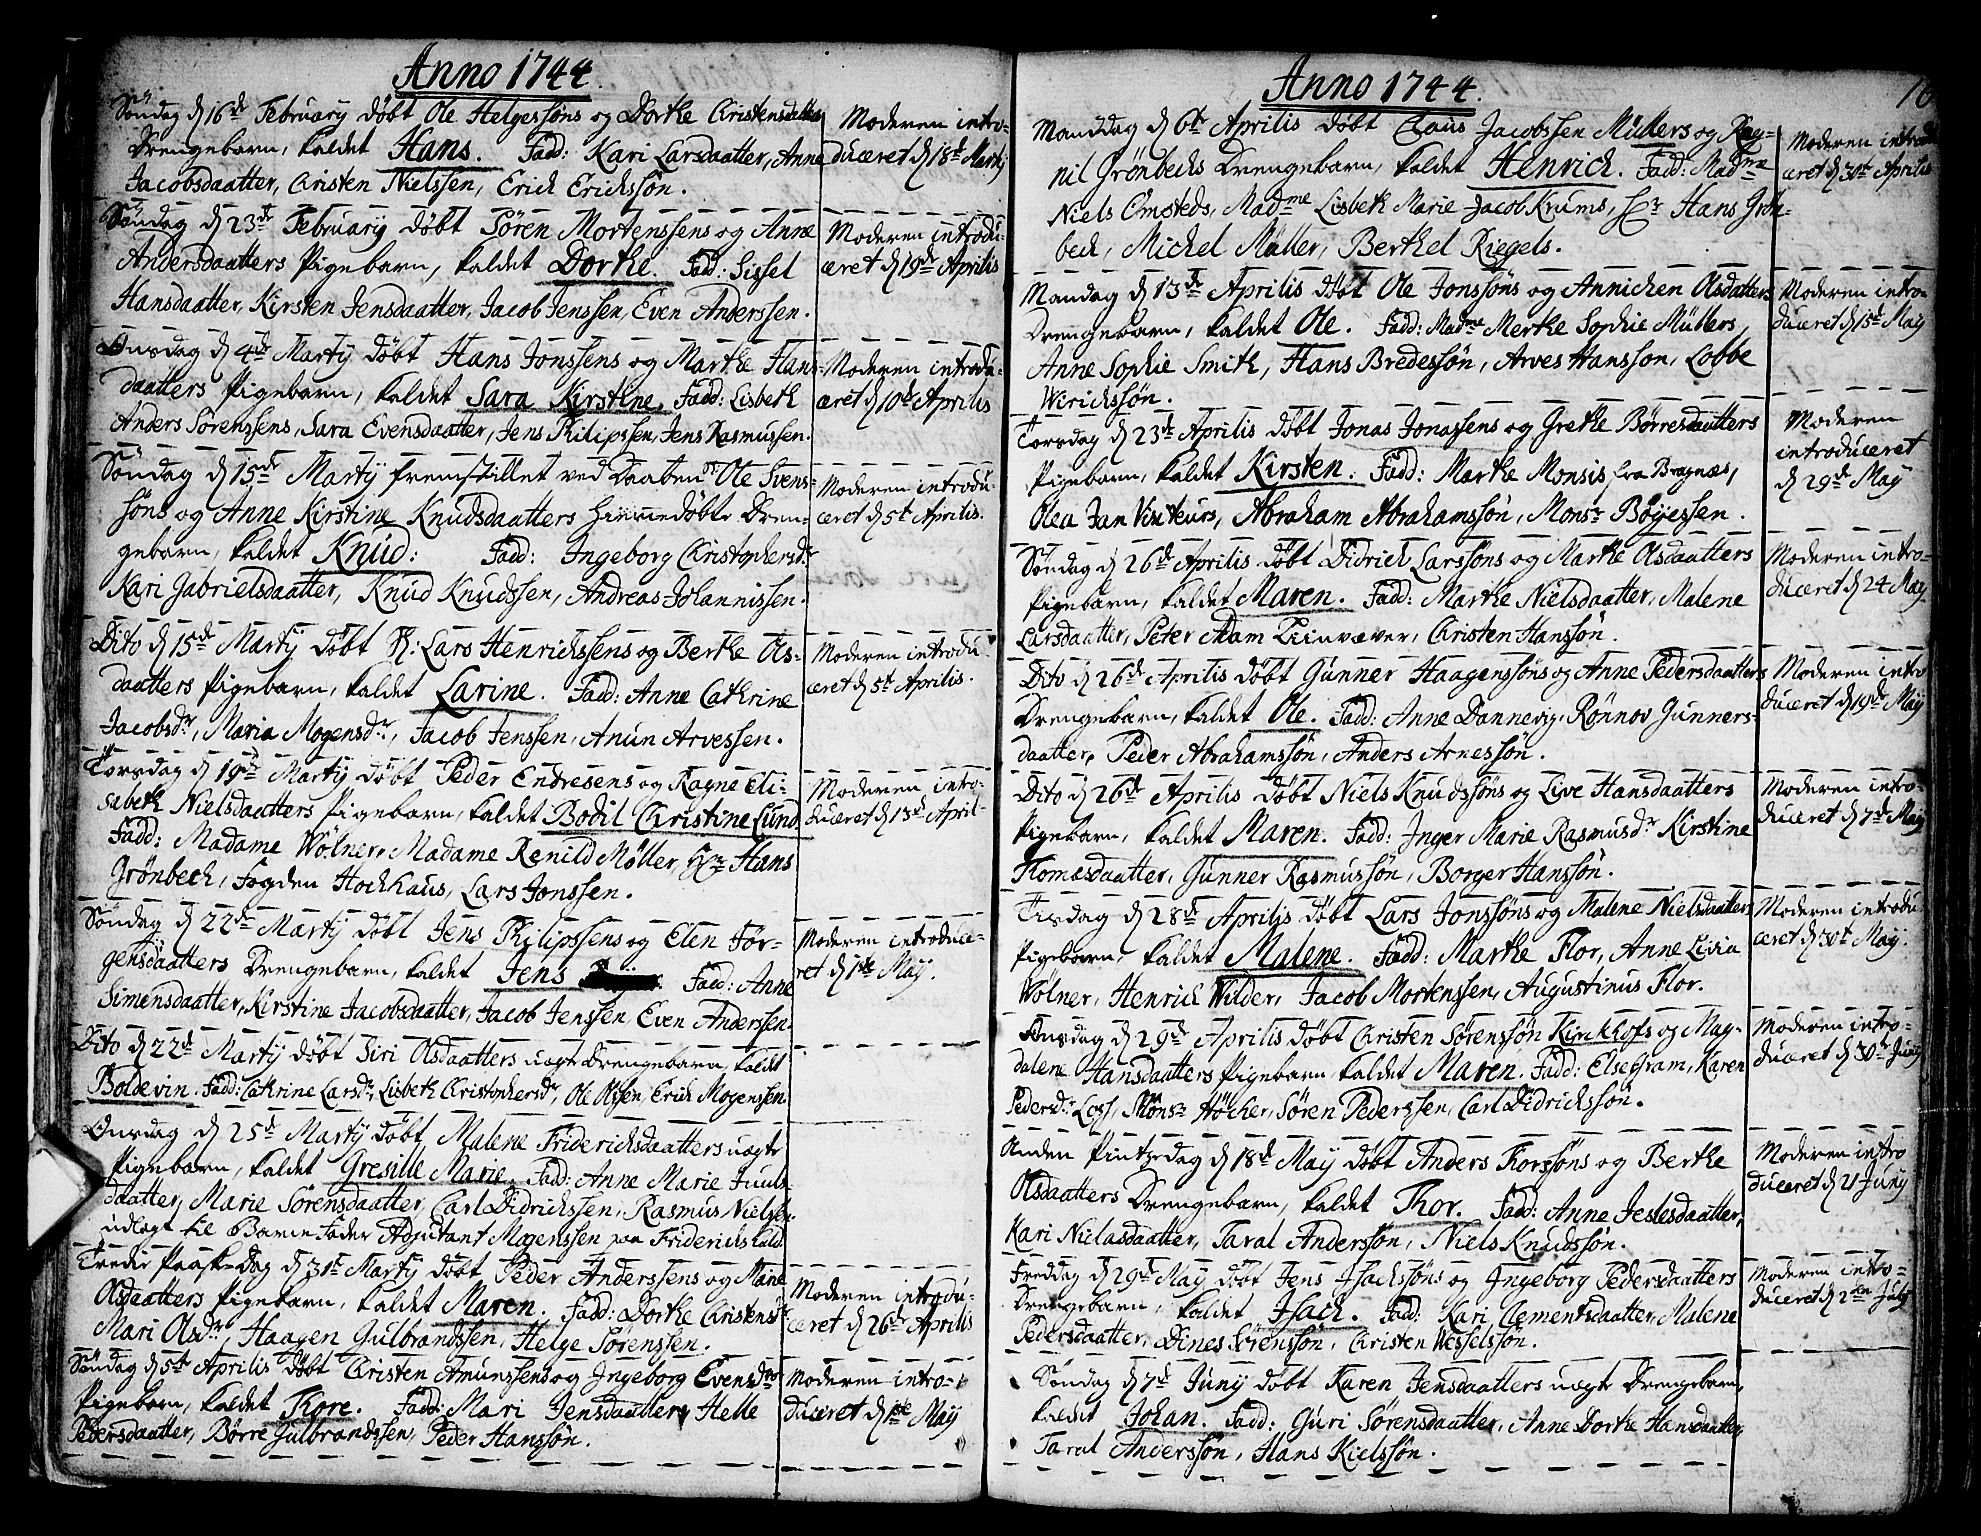 Anno 1744.
Søndag d 16de February døbt Ole Helgessøns og Dorthe Christensdatters
Drengebarn, kaldet Hans. Fadd: Kari Larsdaatter, Anne
Jacobsdaatter, Christen Nielssen, Erich Erichssøn.
Moderen intro-
duceret d 18de Martij
Søndag d 23de February døbt Søren Mortenssens og Anne
Andersdaatters Pigebarn, kaldet Dorthe. Fadd: Sissel
Hansdaatter, Kirsten Jensdaatter, Jacob Jenssen, Even Anderssen.
Moderen introdu-
ceret d 19de Aprilis
Onsdag d 4de Martij døbt Hans Jonssens og Marthe Hans-
daatters Pigebarn, kaldet Sara Kirstine. Fadd: Lisbeth
Anders Sørenssens, Sara Evensdaatter, Jens Philipssen, Jens Rasmussen.
Moderen introdu-
ceret d 10de Aprilis
Søndag d 15de Martij fremstillet ved Daaben Ole Svens-
søns og Anne Kirstine Knudsdaatters hiemmedøbte Dren-
gebarn, kaldet Knud: Fadd: Ingeborg Christophersdr
Kari Gabrielsdaatter, Knud Knudssen, Andreas Johannissen.
Moderen introdu-
ceret d 5te Aprilis.
Dito d 15de Martij døbt R: Lars Henrichssens og Berthe Ols-
daatters Pigebarn, kaldet Larine. Fadd: Anne Cathrine
Jacobsdr, Maria Mogensdr, Jacob Jenssen, Anun Arvessen.
Moderen introdu-
ceret d 5te Aprilis.
Torsdag d 19de Martij døbt Peder Endresens og Ragne Eli-
sabeth Nielsdaatters Pigebarn, kaldet Bodil Christine Lund.
Fadd: Madame Wölner, Madame Renild Møller, Hr Hans
Grønbech, Fogden Hochhaus, Lars Jonssen.
Moderen intro-
duceret d 13de April
Søndag d 22de Martij døbt Jens Philipssens og Elen Jør-
gensdaatters Drengebarn, kaldet Jens Fadd: Anne
Simensdaatter, Kirstine Jacobsdaatter, Jacob Jenssen, Even Anderssen.
Moderen introduce-
ret d 1ste May.
Dito d 22de Martij døbt Siri Olsdaatters uægte Drengebarn, kaldt
Boldevin. Fadd: Cathrine Larsdr, Lisbeth Christophersdr, Ole Olssen, Erich Mogenssen
Onsdag d 25de Martij døbt Malene Friderichsdaatters uægte
Pigebarn, kaldet Gresille Marie. Fadd: Anne Marie Juuls-
daatter, Marie Sørensdaatter, Carl Didrichssen, Rasmus Nielssen.
udlagt til Barne Fader Adjutant Mogenssen paa Friderichshald.
Tredie Paaske-Dag d 31te Martij døbt Peder Anderssens og Maria
Olsdaatters Pigebarn, kaldet Maren. Fadd: Dorthe Christensdr
Mari Olsdr, Haagen Gulbrandssen, Helge Sørenssen.
Moderen introdu-
ceret d 26de Aprilis
Søndag d 5te Aprilis døbt Christen Amunssens og Ingeborg Evensdrs
Pigebarn, kaldet Thore. Fadd: Mari Jensdaatter, Helle
Pedersdaatter, Børre Gulbrandssen, Peder Hanssøn.
Moderen intro-
duceret d 1ste May
Anno 1744.
16
Manddag d 6te Aprilis døbt Claus Jacobssen Müllers og Rag-
nil Grønbechs Drengebarn, kaldet Henrich. Fadd: Madme
Niels Omsteds, Madme Lisbeth Marie Jacob Krums, Hr Hans Grøn-
bech, Michel Müller, Berthel Riegels.
Moderen introdu
ceret d 30te Aprilis
Mandag d 13de Aprilis døbt Ole Jonssøns og Annichen Olsdatters
Drengebarn, kaldet Ole. Fadd: Madme Merthe Sophie Müllers,
Anne Sophie Smith, Hans Bredessøn, Arves Hansson, Lobbe
Werichssøn.
Moderen intro-
duceret d 15de May
Torsdag d 23de Aprilis døbt Jonas Jonassens og Grethe Børresdaatters
Pigebarn, kaldet Kirsten. Fadd: Marthe Monsis fra Bragnæs,
Olea Jan Visiteurs, Abraham Abrahamssøn, Monsr Bøyessen.
Moderen
introduceret
d 29de May
Søndag d 26de Aprilis døbt Didrich Larssøns og Marthe Olsdaatters
Pigebarn, kaldet Maren. Fadd: Marthe Nielsdaatter, Malene
Larsdaatter, Peter Adam Liinvæver, Christen Hanssøn.
Moderen intro-
duceret d 24 May
Dito d 26de Aprilis døbt Gunner Haagenssøns og Anne Pedersdaatters
Drengebarn, kaldet Ole. Fadd: Anne Dannevig, Rønnov Gunners-
daatter, Peder Abrahamssøn, Anders Arnessøn.
Moderen intro
duceret d 19de May
Dito d 26de Aprilis døbt Niels Knudssøns og Live Hansdaatters
Pigebarn, kaldet Maren. Fadd: Inger Marie Rasmusdr Kirstine
Thomasdaatter, Gunner Rasmussøn, Borger Hanssøn.
Moderen intro-
duceret d 7de May
Tisdag d 28de Aprilis døbt Lars Jonssøns og Malene Nielsdaatters
Pigebarn, kaldet Malene. Fadd: Marthe Flor, Anne Livia
Wölner, Henrich Wilder, Jacob Mortenssen, Augustinus Flor.
Moderen introdu
ceret d 30te May.
Onsdag d 29de Aprilis døbt Christen Sørenssøn Kirckhofs og Mag-
dalene Hansdaatters Pigebarn kaldet Maren. Fadd: Else Gram, Karen
Pedersdr Loss, Monsr Höcher, Søren Pederssen, Carl Didrichssøn.
Moderen intro-
duceret d 30te Juny
Anden Pintzedag d 18de May døbt Anders Thorssøns og Berthe
Olsdaatters Drengebarn, kaldet Thor. Fadd: Anne Jeslesdaatter,
Kari Niclasdaatter, Taral Anderssøn, Niels Knudssøn.
Moderen intro
duceret d 21 Juny
Fredag d 29de May døbt Jens Isachssøns og Ingeborg Pedersdaatters
Drengebarn, kaldet Isach. Fadd: Kari Clementsdaatter, Malene
Pedersdaatter, Dines Sørenssøn, Christen Wesselssøn.
Moderen intro-
duceret d 2den July
Søndag d 7de Juny døbt Karen Jensdaatters uægte Drengebarn,
kaldet Johan. Fadd: Guri Sørensdaatter, Anne Dorthe Hansdaatter,
Taral Anderssøn, Hans Kielssøn.